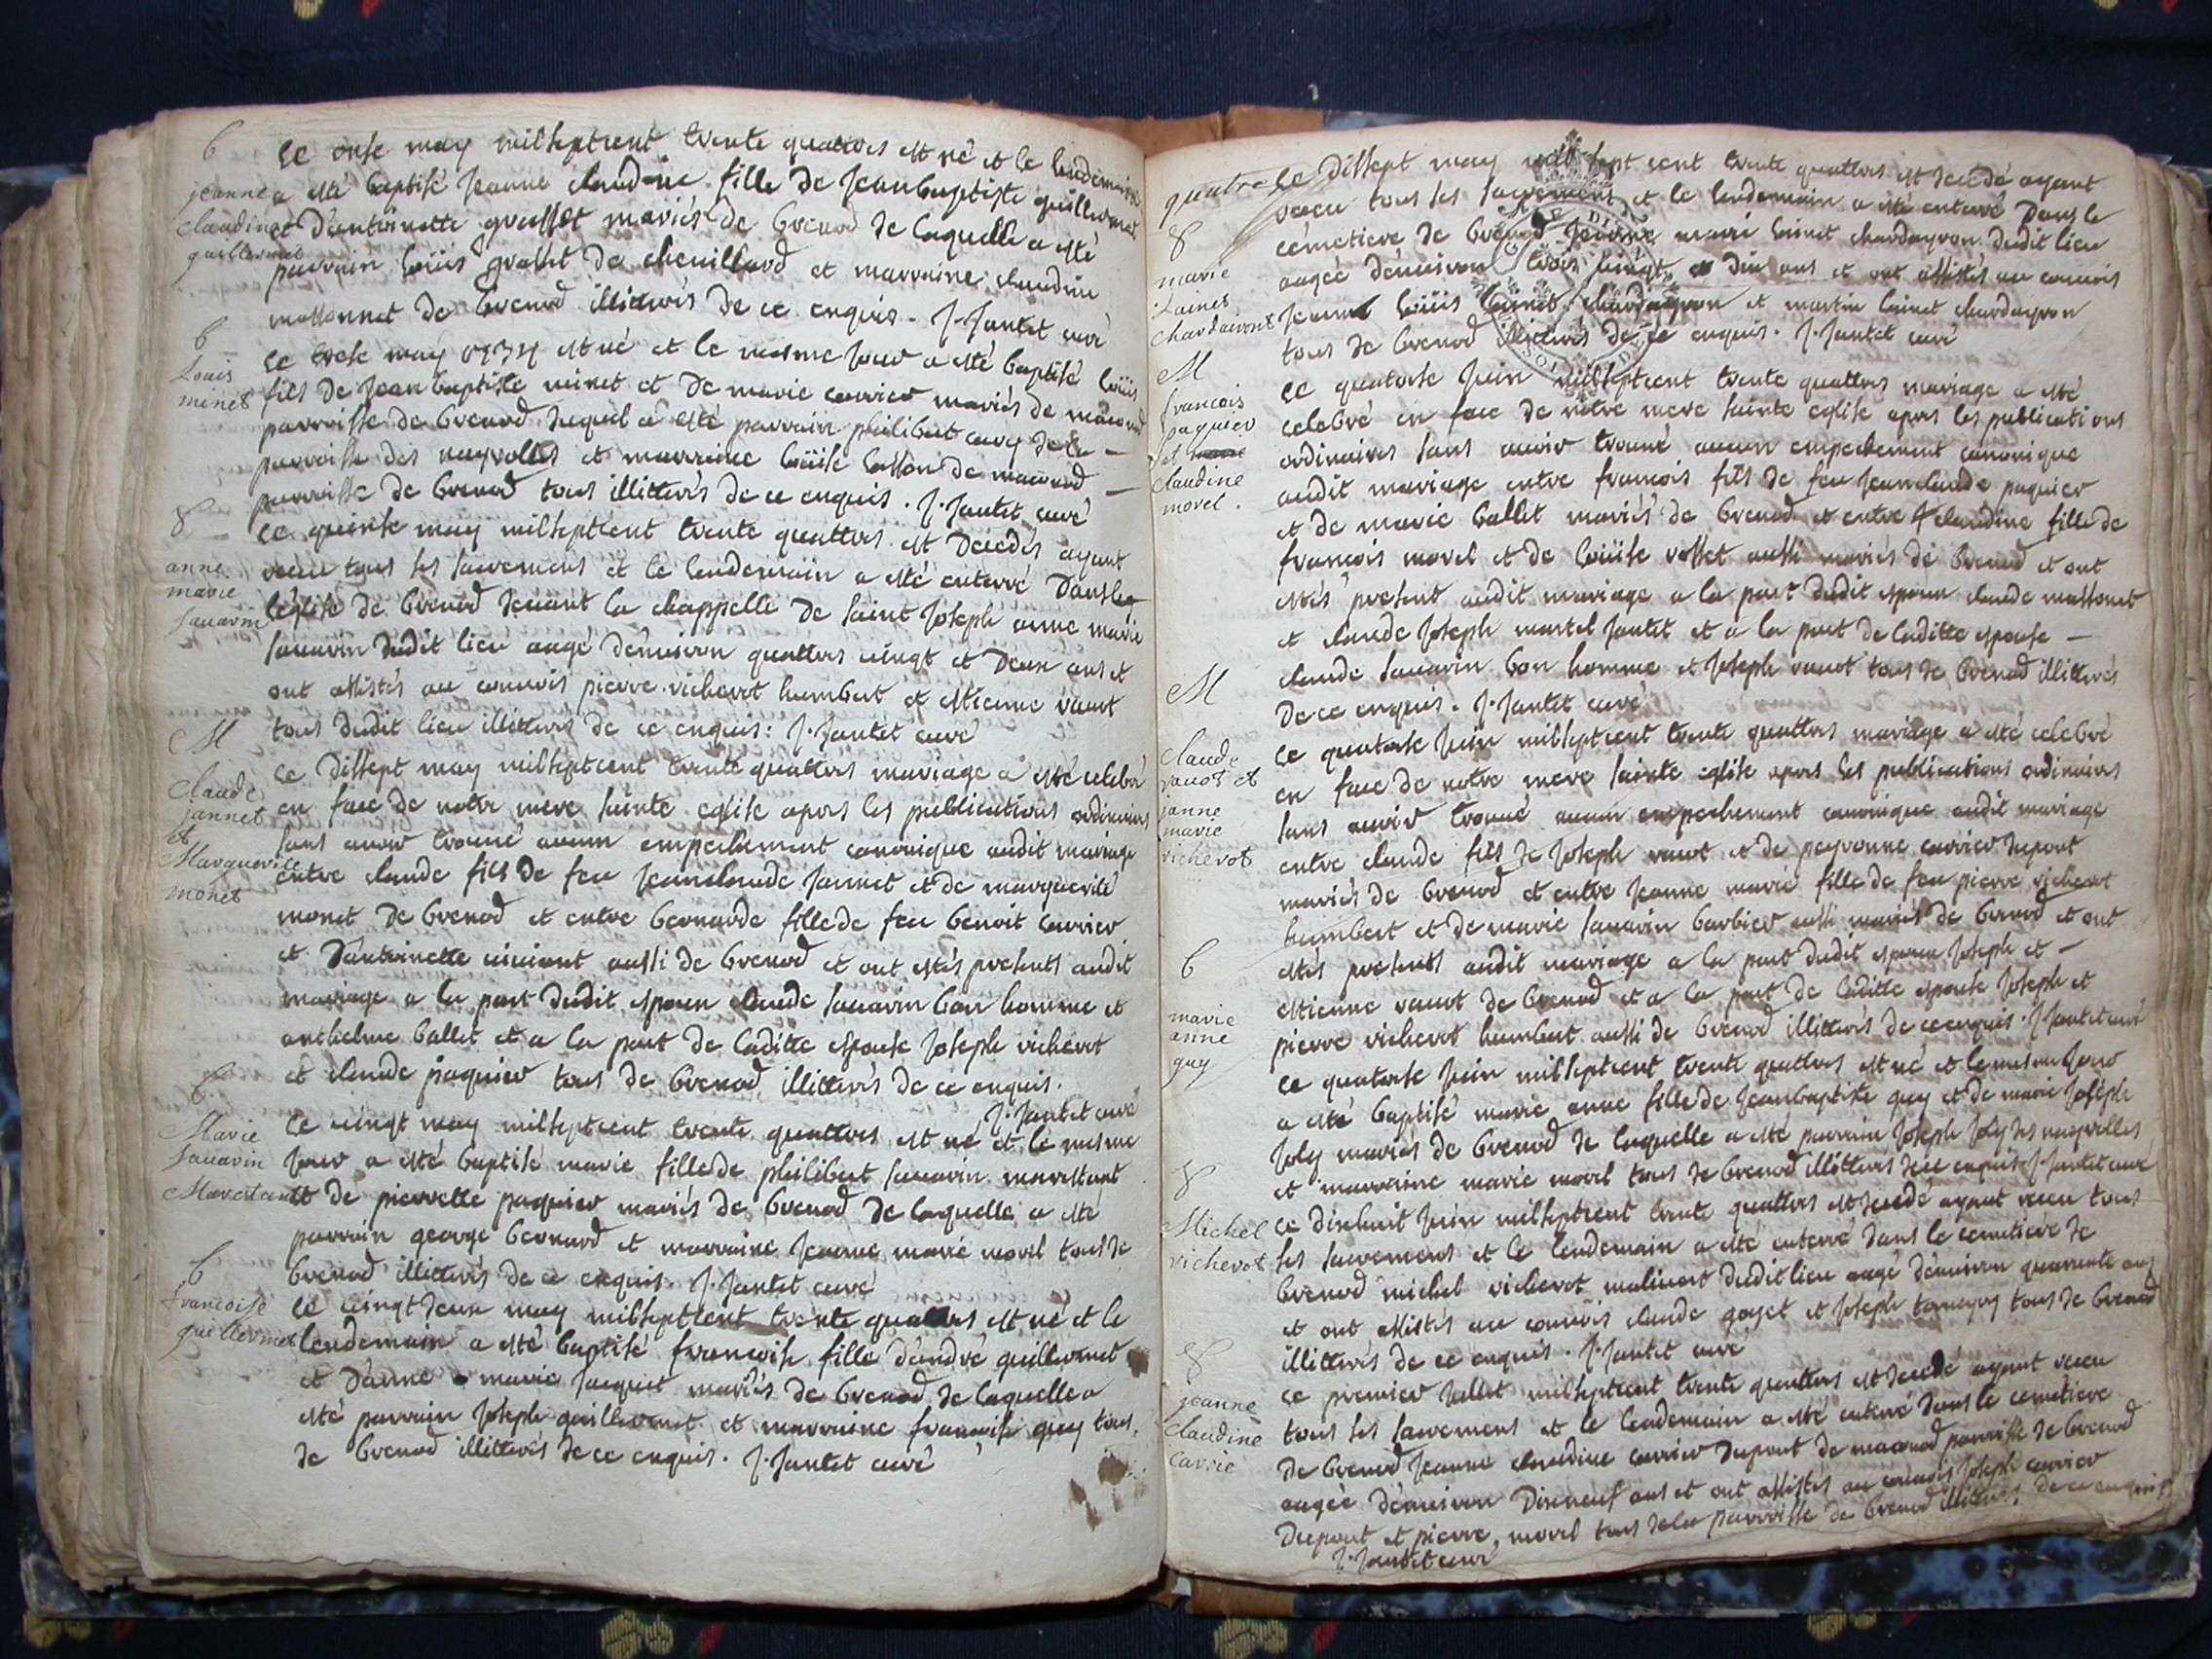 b
jeanne
claudine
guillermet
le onse may milseptcent trente quattres est né et le lendemain
a esté baptisé Jeanne claudine fille de Jeanbaptiste guillermet
et d'antoinette grosset mariés de brenod de laquelle a esté
parrain loüis grosset de chevillard et marraine claudine
massonnet de brenod illitterés de ce enquis. J. Jantet curé
b
Louis
minet
le trese may 1734 est né et le mesme jour a esté baptisé loüis
fils de Jean baptiste minet et de marie carrier mariés de macconod
parroisse de brenod duquel a esté parrain philibert de la
parroisse des neyrolles et marraine loüise de macconod
parroisse de brenod tous illitterés de ce enquis. J. Jantet curé
anne
marie
sauarin
le quinse may milseptcent trente quattres est decedés ayant
receu tous ses sacremens et le lendemain a esté enterré dans leg
l'église de brenod deuant la chappelle de saint Joseph anne marie
sauarin dudit lieu aagé d'enuiron quattres vingt et deux ans et
ont assistés au conuois pierre vicherot humbert et estienne vauot
tous dudit lieu illitterés de ce enquis: J. Jantet curé
M
claude
jannet
et
Marguerite
monet
le dissept may milseptcent trente quattres mariage a esté celebré
en face de notre mere sainte eglise apres les publications ordinaires
sans auoir trouué aucun empechement canonique audit mariage
entre claude fils de feu Jeanclaude Jannet et de marguerite
monet de brenod et entre bernarde fille de feu benoit carrier
et d'antoinette aussi de brenod et ont estés presents audit
mariage a la part dudit epoux claude sauarin bon homme et
anthelme ballet et a la part de laditte espouse Joseph vicherot
et claude paquier tous de brenod illitterés de ce enquis.
J. Jantet curé
b
Marie
sauarin
Marestant
le vingt may milseptcent trente quattres est né et le mesme
jour a esté baptisé marie fille de philibert sauarin marestant
et de pierrette paquier mariés de brenod de laquelle a esté
parrain george bernard et marraine Jeanne marie morel tous de
brenod illitterés de ce enquis. J. Jantet curé
b
francoise
guillermet
le vingt deux may milseptcent trente quattres est né et le
lendemain a esté baptisé francoise fille d'andré guillermet
et d'anne marie Jacquet mariés de brenod de laquelle a
esté parrain Joseph guillermet et marraine francoise guy tous
de brenod illitterés de ce enquis. J. Jantet curé
quatre
marie
Loinet
chardairont
le dissept may mil sept cent trente quattres est decedé ayant
receu tous ses sacremens et le lendemain a esté enterré dans le
cemetiere de brenod Jeanne marie loinet chardayron dudit lieu
aagée d'enuiron trois vingt et dix ans et ont assistés au conuois
Jeanne loüis loinet chardayron et martin loinet chardayron
tous de brenod illitterés de ce enquis. J. Jantet curé
M
francois
paquier
et
claudine
morel.
le quatorse Juin milseptcent trente quattres mariage a esté
celebré en face de notre mere sainte eglise apres les publications
ordinaires sans auoir trouué aucun empechement canonique
audit mariage entre francois fils de feu Jeanclaude paquier
et de marie ballet mariés de brenod et entre claudine fille de
francois morel et de loüise rosset aussi mariés de brenod et ont
estés present audit mariage a la part dudit epoux claude massonet
et claude Joseph martel Jantet et a la part de laditte espouse
claude sauarin bon homme et Joseph vauot tous de brenod illitterés
de ce enquis. J. Jantet curé
M
claude
vauot et
janne
marie
vicherot
le quatorse juin milseptcent trente quattres mariage a esté celebré
en face de notre mere sainte eglise apres les publications ordinaires
sans auoir trouué aucun empechement canonique audit mariage
entre claude fils de Joseph vauot et de peyronne carrier dupont
mariés de brenod et entre Jeanne marie fille de feu pierre vicherot
humbert et de marie sauarin barbier aussi mariés de brenod et ont
estés presents audit mariage a la part dudit epoux Joseph et
estienne vauot de brenod et a la part de laditte espouse Joseph et
pierre vicherot humbert aussi de brenod illitterés de ce enquis. J. Jantet curé
b
marie
anne
guy
le quatorse Juin milseptcent trente quattres est né et le mesme jour
a esté baptisé marie anne fille de Jeanbaptiste guy et de marie Joseph
Joly mariés de brenod de laquelle a esté parrain Joseph Joly des neyrolles
et marraine marie morel tous de brenod illitterés de ce enquis J. Jantet curé
Michel
vicherot
le dixhuit Juin milseptcent trente quattres est decedé ayant receu tous
ses sacremens et le lendemain a esté enterré dans le cemetiere de
brenod michel vicherot dudit lieu aagé d'enuiron quarante ans
et ont assistés au conuois claude goyet et Joseph tous de brenod
illitterés de ce enquis. J. Jantet curé
jeanne
claudine
carrie
le premier Jullet milseptcent trente quattres est decedé ayant receu
tous ses sacremens et le lendemain a esté enterré dans le cemetiere
de brenod Jeanne claudine carrier dupont de macconod parroisse de brenod
aagée d'enuiron dixneuf ans et ont assistés au conuois Joseph carrier
dupont et pierre morel tous de la parroisse de brenod illitterés de ce enquis
J. Jantet curé